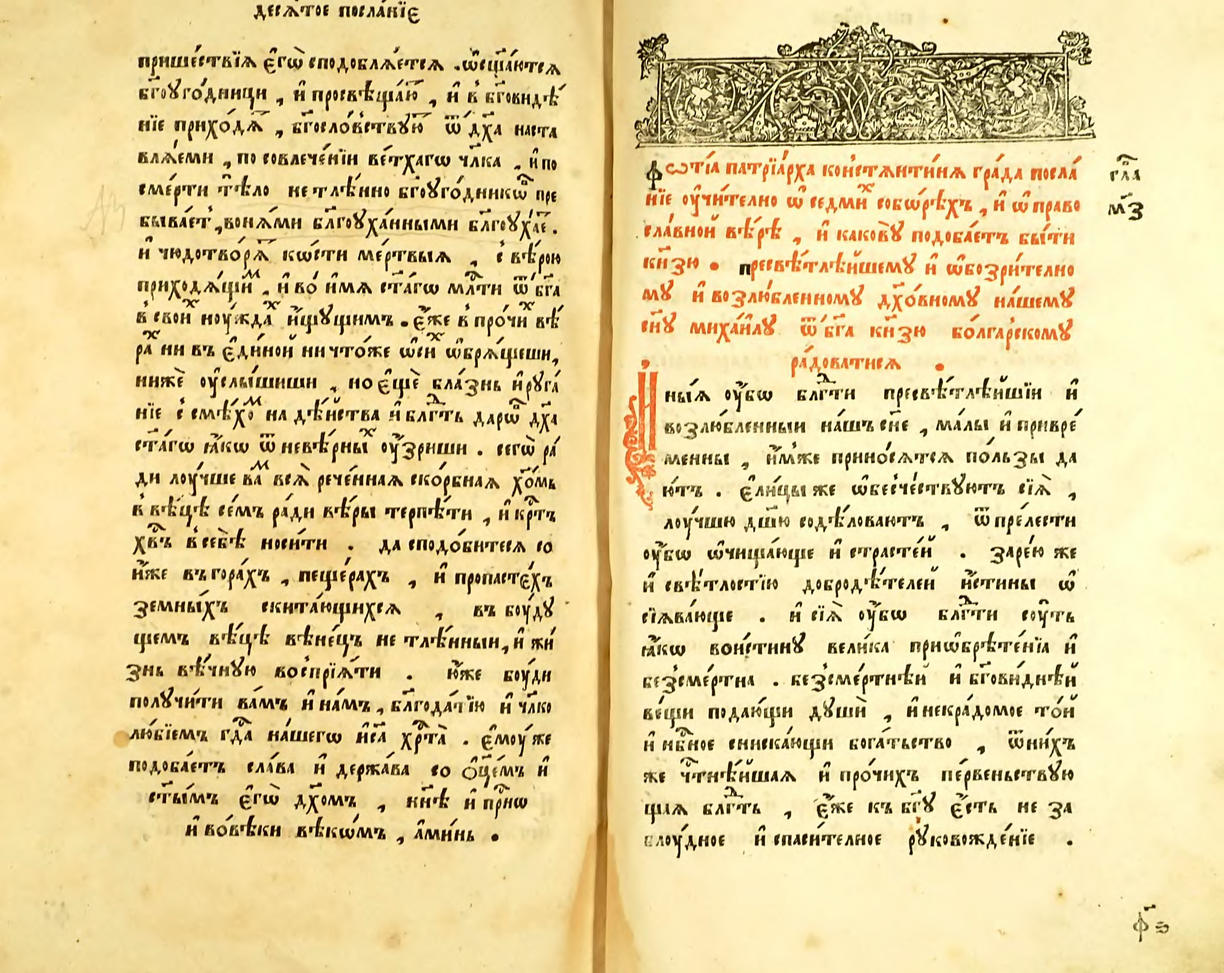 десѧ́тое посла́нїе
прише́ствїѧ є҆гѡ̀ сподоблѧ́етсѧ . ѡ҆сщ҃а́ютсѧ
бг҃оуго́дници , и҆ просвѣща́ю , и҆ в бг҃овидѣ́
нїе прихо́дѧ , бг҃осло́вствꙋю ѿ дх҃а наста
влѧ́еми , по совлече́нїи ве́тхагѡ чл҃ка , и҆ по
сме́рти тѣ́ло нетлѣ́нно бг҃оуго́дникѡ пре
быва́ет , вонѧ́ми бл҃гоуха́нными бл҃гоуха́е .
и҆ чюдотво́рѧ кѡ́сти ме́ртвыѧ , с вѣ́рою
приходѧ́щи́м , и҆ во и҆́мѧ ст҃а́гѡ мл҃ти ѿ бг҃а
в свои́х ноу́ждах и҆́щꙋщимъ . є҆́же в про́чих вѣ́
рах ни въ є҆ди́ной ничто́же ѡ҆си́х ѡ҆брѧ́щеши ,
нижѐ оу҆слы́шиши , но є҆щѐ бла́знь и҆ рꙋга́
нїе с смѣ́хом на дѣ́йства и҆ бл҃гть дарѡ́в дх҃а
ст҃а́гѡ ꙗ҆́кѡ ѿ невѣ́рных оу҆́зриши . сегѡ̀ ра́
ди лоу́чше вам всѧ̀ рече́ннаѧ ско́рбнаѧ хо́мь
в вѣ́цѣ се́мъ ра́ди вѣ́ры терпѣ́ти , и҆ крт҃ъ
хв҃ъ в себѣ̀ носи́ти . да сподо́битесѧ со
и҆́же въ гора́хъ , пеще́рахъ , и҆ пропасте́хъ
земны́хъ скита́ющихсѧ , въ боу́дꙋ
щемъ вѣ́цѣ вѣне́цъ нетлѣ́нныи , и҆ жи́
знь вѣ́чнꙋю воспрїѧ́ти . ю҆́же боу́ди
полꙋчи́ти ва́мъ и҆ на́мъ , бл҃года́тїю и҆ чл҃ко
лю́бїемъ гд҃а на́шегѡ і҆и҃са хр҃та̀ . є҆моу́же
подоба́етъ сла́ва и҆ держа́ва со ѻ҆ц҃е́мъ и҆
ст҃ы́мъ є҆гѡ̀ дх҃омъ , нн҃ѣ и҆ пр҃нѡ
и҆ во́вѣки вѣкѡ́мъ , а҆ми́нь .
Фѡтїа патрїа́рха коньстѧнти́нѧ гра́да посла́
нїе оу҆чи́телно ѡ҆ седми́х собѡ́рѣхъ , и҆ ѡ҆ право
сла́вной вѣ́рѣ , и҆ како́вꙋ подоба́етъ бы́ти
кн҃зю . пресвѣ́тлѣ́йшемꙋ и҆ ѡ҆бозри́телно
мꙋ и҆ возлю́бленномꙋ дх҃о́вномꙋ на́шемꙋ
сн҃ꙋ миха́илꙋ ѿ бг҃а кн҃зю бо́лгарскомꙋ
ра́доватисѧ .
гла҃
мз҃
И҆ны́ѧ оу҆́бѡ бл҃гти пресвѣ́тлѣ́йшїи и҆
возлю́бленныи на́шъ сн҃е , ма́лы и҆ привре́
менны , и҆́мже прино́сѧтсѧ по́льзы да
ю́тъ . є҆ли́цы же ѡ҆бесче́ствꙋютъ сїѧ̀ ,
лоу́чшю дш҃ю содѣ́ловаютъ , ѿ пре́лести
оу҆́бѡ ѡ҆чища́юще и҆ страсте́й . заре́ю же
и҆ свѣ́тлостїю добродѣ́телей и҆́стины ѡ҆
сїѧва́юще . и҆ сїѧ̀ оу҆́бѡ бл҃гти соу́ть
ꙗ҆́кѡ вои́стинꙋ вели́ка приѡ҆брѣте́нїа и҆
безсме́ртна . безсме́ртнѣй и҆ бг҃ови́днѣй
ве́щи подаю́щи дꙋшѝ , и҆ некра́домое то́й
и҆ нб҃ное сниска́ющи бога́тьство , ѿ ни́хъ
же чт҃нѣ́йшаѧ и҆ про́чихъ пе́рвеньствꙋю
щаѧ бл҃гть , є҆́же къ бг҃ꙋ є҆́сть не за
блоу́дное и҆ спаси́телное рꙋковожде́нїе .